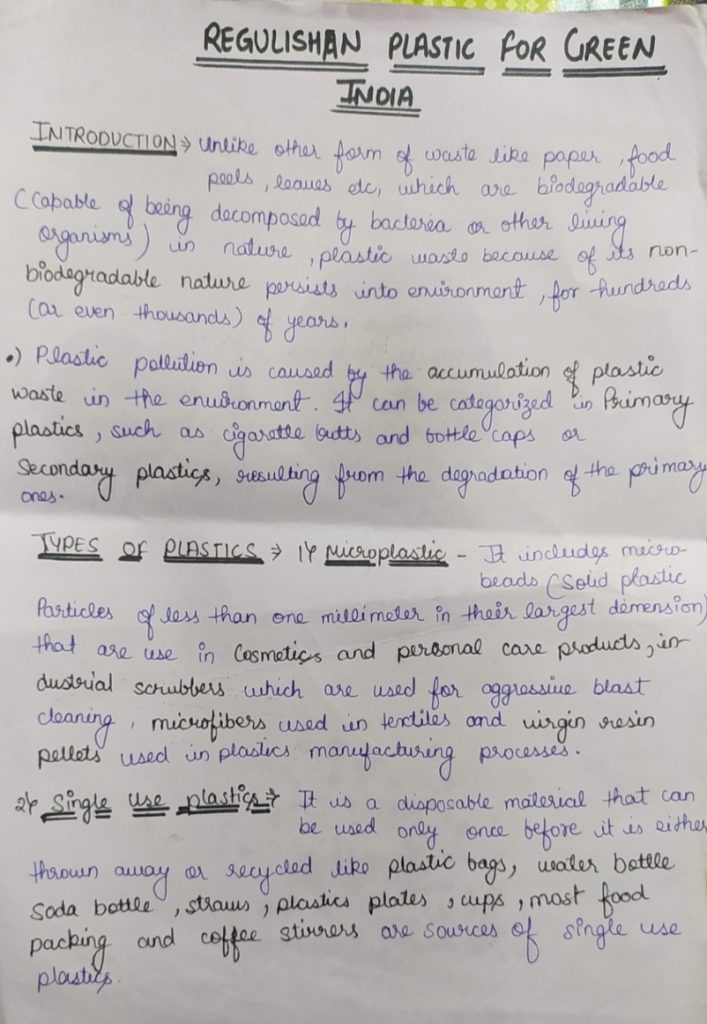 REGULISHAN PLASTIC FOR GREEN
INDIA
INTRODUCTION → Unlike other form of waste like paper, food
peels, leaves etc, which are biodegradable
(Capable of being decomposed by bacterea or other living
organisms) in nature, plastic waste because of its non-
biodegradable nature persists into environment, for hundreds
(or even thousands) of years.
•) Plastic pollution is caused by the accumulation of plastic
waste in the environment. It can be categorized in Primary
plastics, such as cigarette butts and bottle caps or
Secondary plastics, resulting from the degradation of the primary
ones.
TYPES OF PLASTICS → 1} Microplastic - It includes mecro-
beads (Solid plastic
Particles of less than one millimeter in their largest demension)
that are use in Cosmetics and personal care products, in-
dustrial scrubbers which are used for aggressive blast
cleaning, microfibers used in textiles and virgin resin
pellets used in plastics manufacturing processes.
2} Single use plastics → It is a disposable material that can
be used only once before it is either
thrown away or recycled like plastic bags, water bottle
Soda bottle, straws, plastics plates, cups, most food
packing and coffee stirrers are sources of single use
plastics.